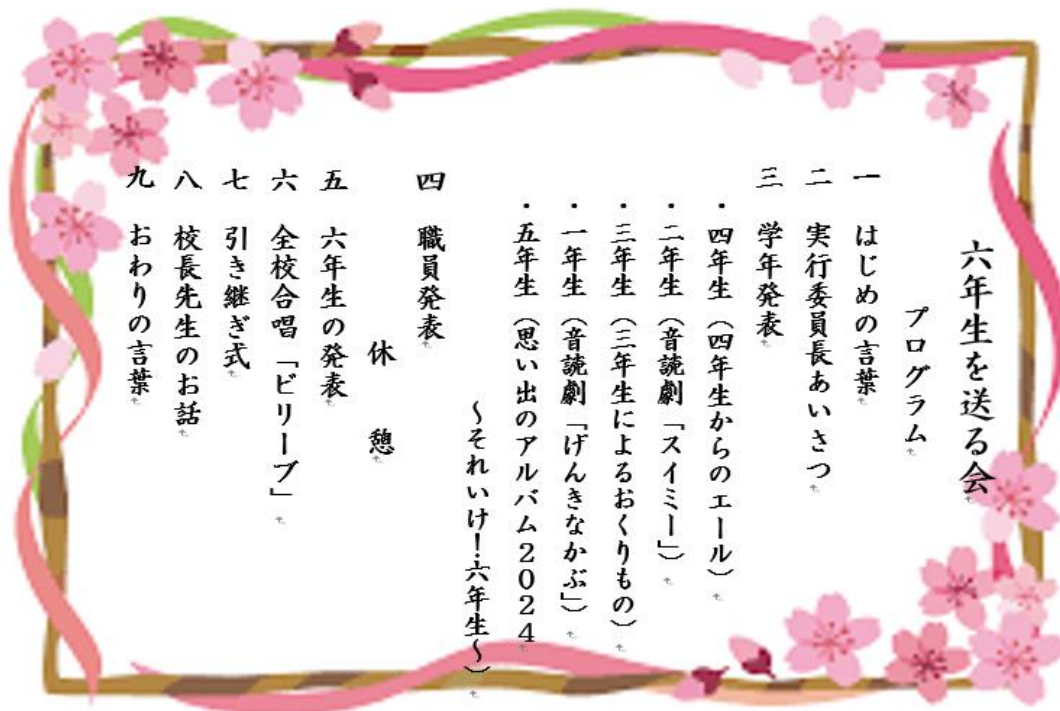 六年生を送る会
プログラム
一 はじめの言葉
二 実行委員長あいさつ
三 学年発表
・四年生（四年生からのエール）
・二年生（音読劇「スイミー」）
・三年生（三年生によるおくりもの）
・一年生（音読劇「げんきなかぶ」）
・五年生（思い出のアルバム２０２４
～それいけ！六年生～）
四 職員発表
休 憩
五 六年生の発表
六 全校合唱「ビリーブ」
七 引き継ぎ式
八 校長先生のお話
九 おわりの言葉